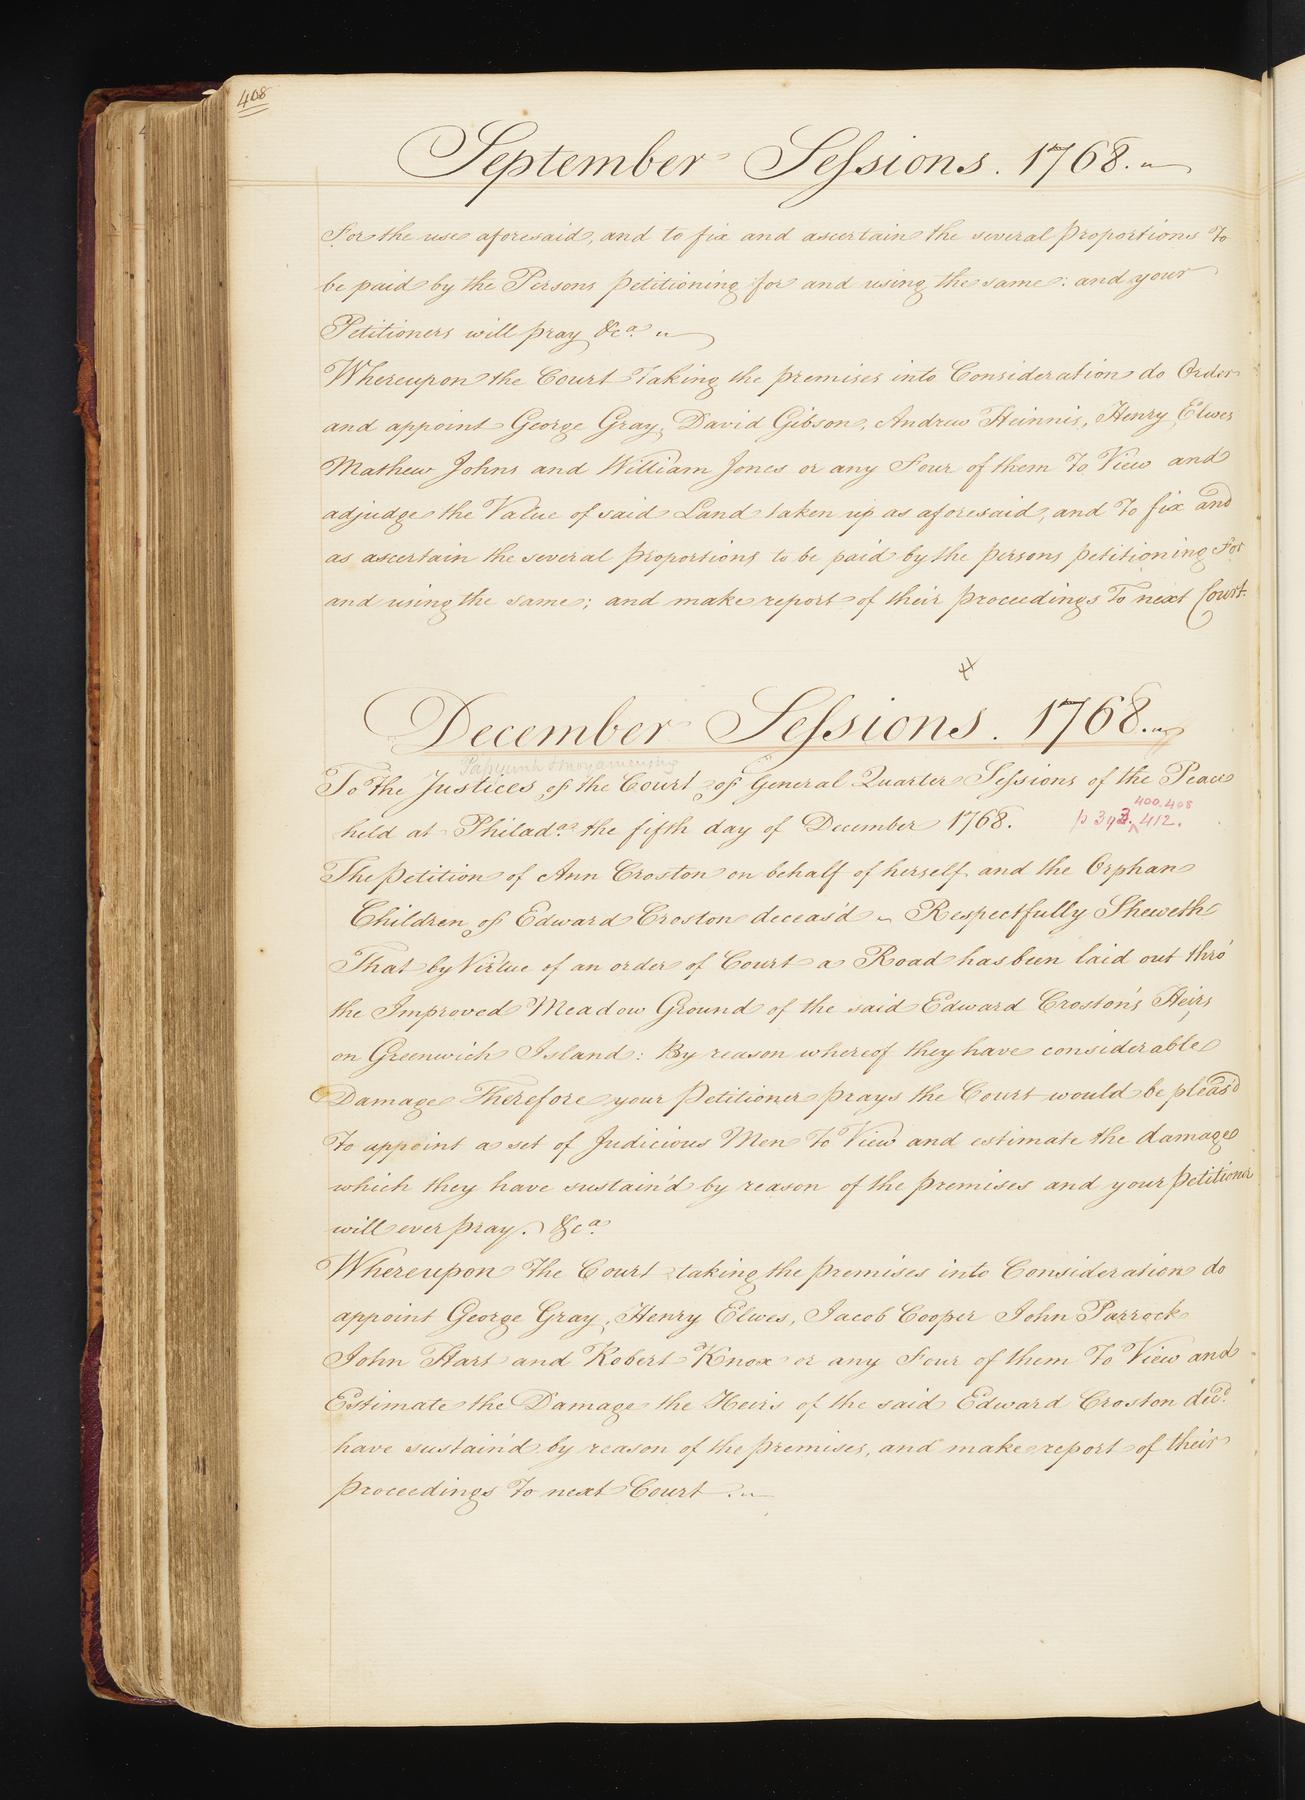 408
September Sessions. 1768.
For the use aforesaid, and to fix and ascertain the several proportions To
be paid by the Persons petitioning for and using the same: and your
Petitioners will pray &c.a
Whereupon the Court Taking the premises into Consideration do Order
and appoint George Gray, David Gibson, Andrew Heinnis, Henry Elwes
Mathew Johns and William Jones or any Four of them To View and
adjudge the Value of said Land taken up as aforesaid, and To fix and
as ascertain the several proportions to be paid by the persons petitioning For
and using the same; and make report of their proceedings To next Court.
December Sessions. 1768.
Passyunk & moyamensing
To the Justices of the Court of General Quarter Sessions of the Peace
400.408
held at Philad.a the fifth day of December 1768. p 393. 412.
The petition of Ann Croston on behalf of herself and the Orphan
Children of Edward Croston deceas'd Respectfully Sheweth
That by Virtue of an order of Court a Road has been laid out thro'
the Improved Meadow Ground of the said Edward Croston's Heirs
on Greenwich Island: By reason whereof they have considerable
Damage Therefore your Petitioner prays the Court would be pleas'd
To appoint a set of Judicious Men To View and estimate the damage
which they have sustain'd by reason of the premises and your petitioner
will ever pray. &c.a
Whereupon The Court taking the premises into Consideration do
appoint George Gray, Henry Elwes, Jacob Cooper John Parrock
John Hart and Robert Knox or any Four of them To View and
Estimate the Damage the Heirs of the said Edward Croston dec.d
have sustain'd by reason of the premises, and make report of their
proceedings To next Court.